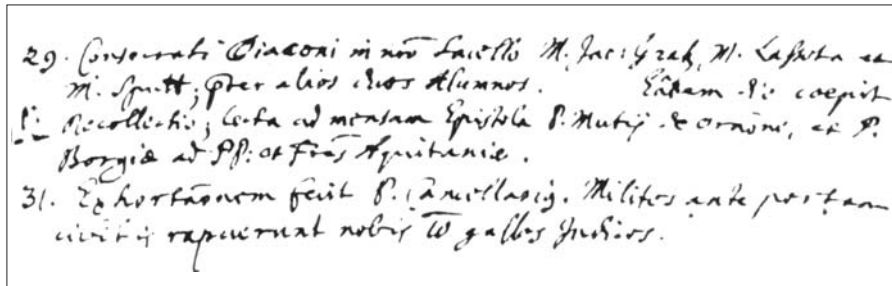 29. Consecrati Diaconi in nro̅ Sacello M. Jac: M. et
M. ; p̅ter alios duos Alumnos. Ea̅dem die coepit
Recollectio; lecta ad mensam Epistola P. Mutij de o̅ro̅ne, et P.
Borgiæ ad PP: et Fres̅ Aquitaniæ.
31. Exhorta̅onem fecit P. Cancellarius. Milites ante portam
civitis rapuerunt nobis gallos Indicos.